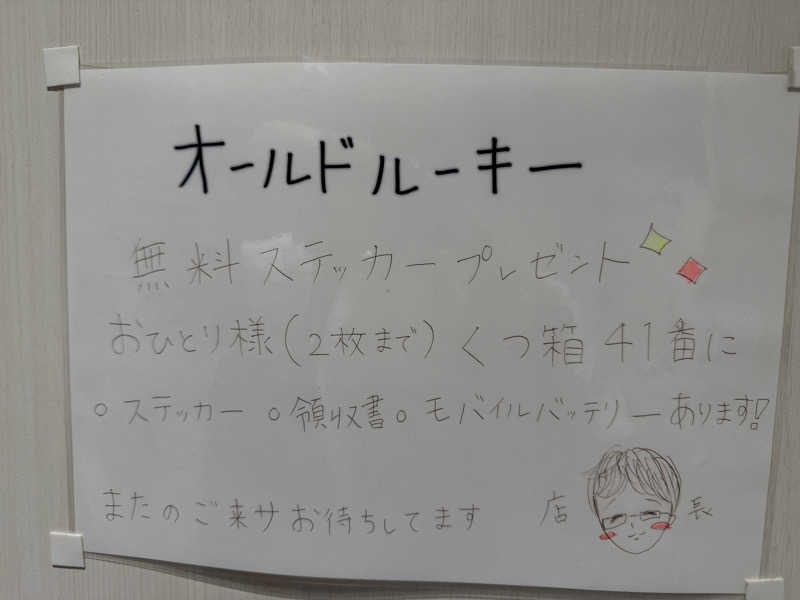 オールドルーキー
無料ステッカープレゼント
おひとり様(2枚まで)くつ箱41番に
○ステッカー ○領収書○モバイルバッテリーあります!!
またのご来サお待ちしてます 店長